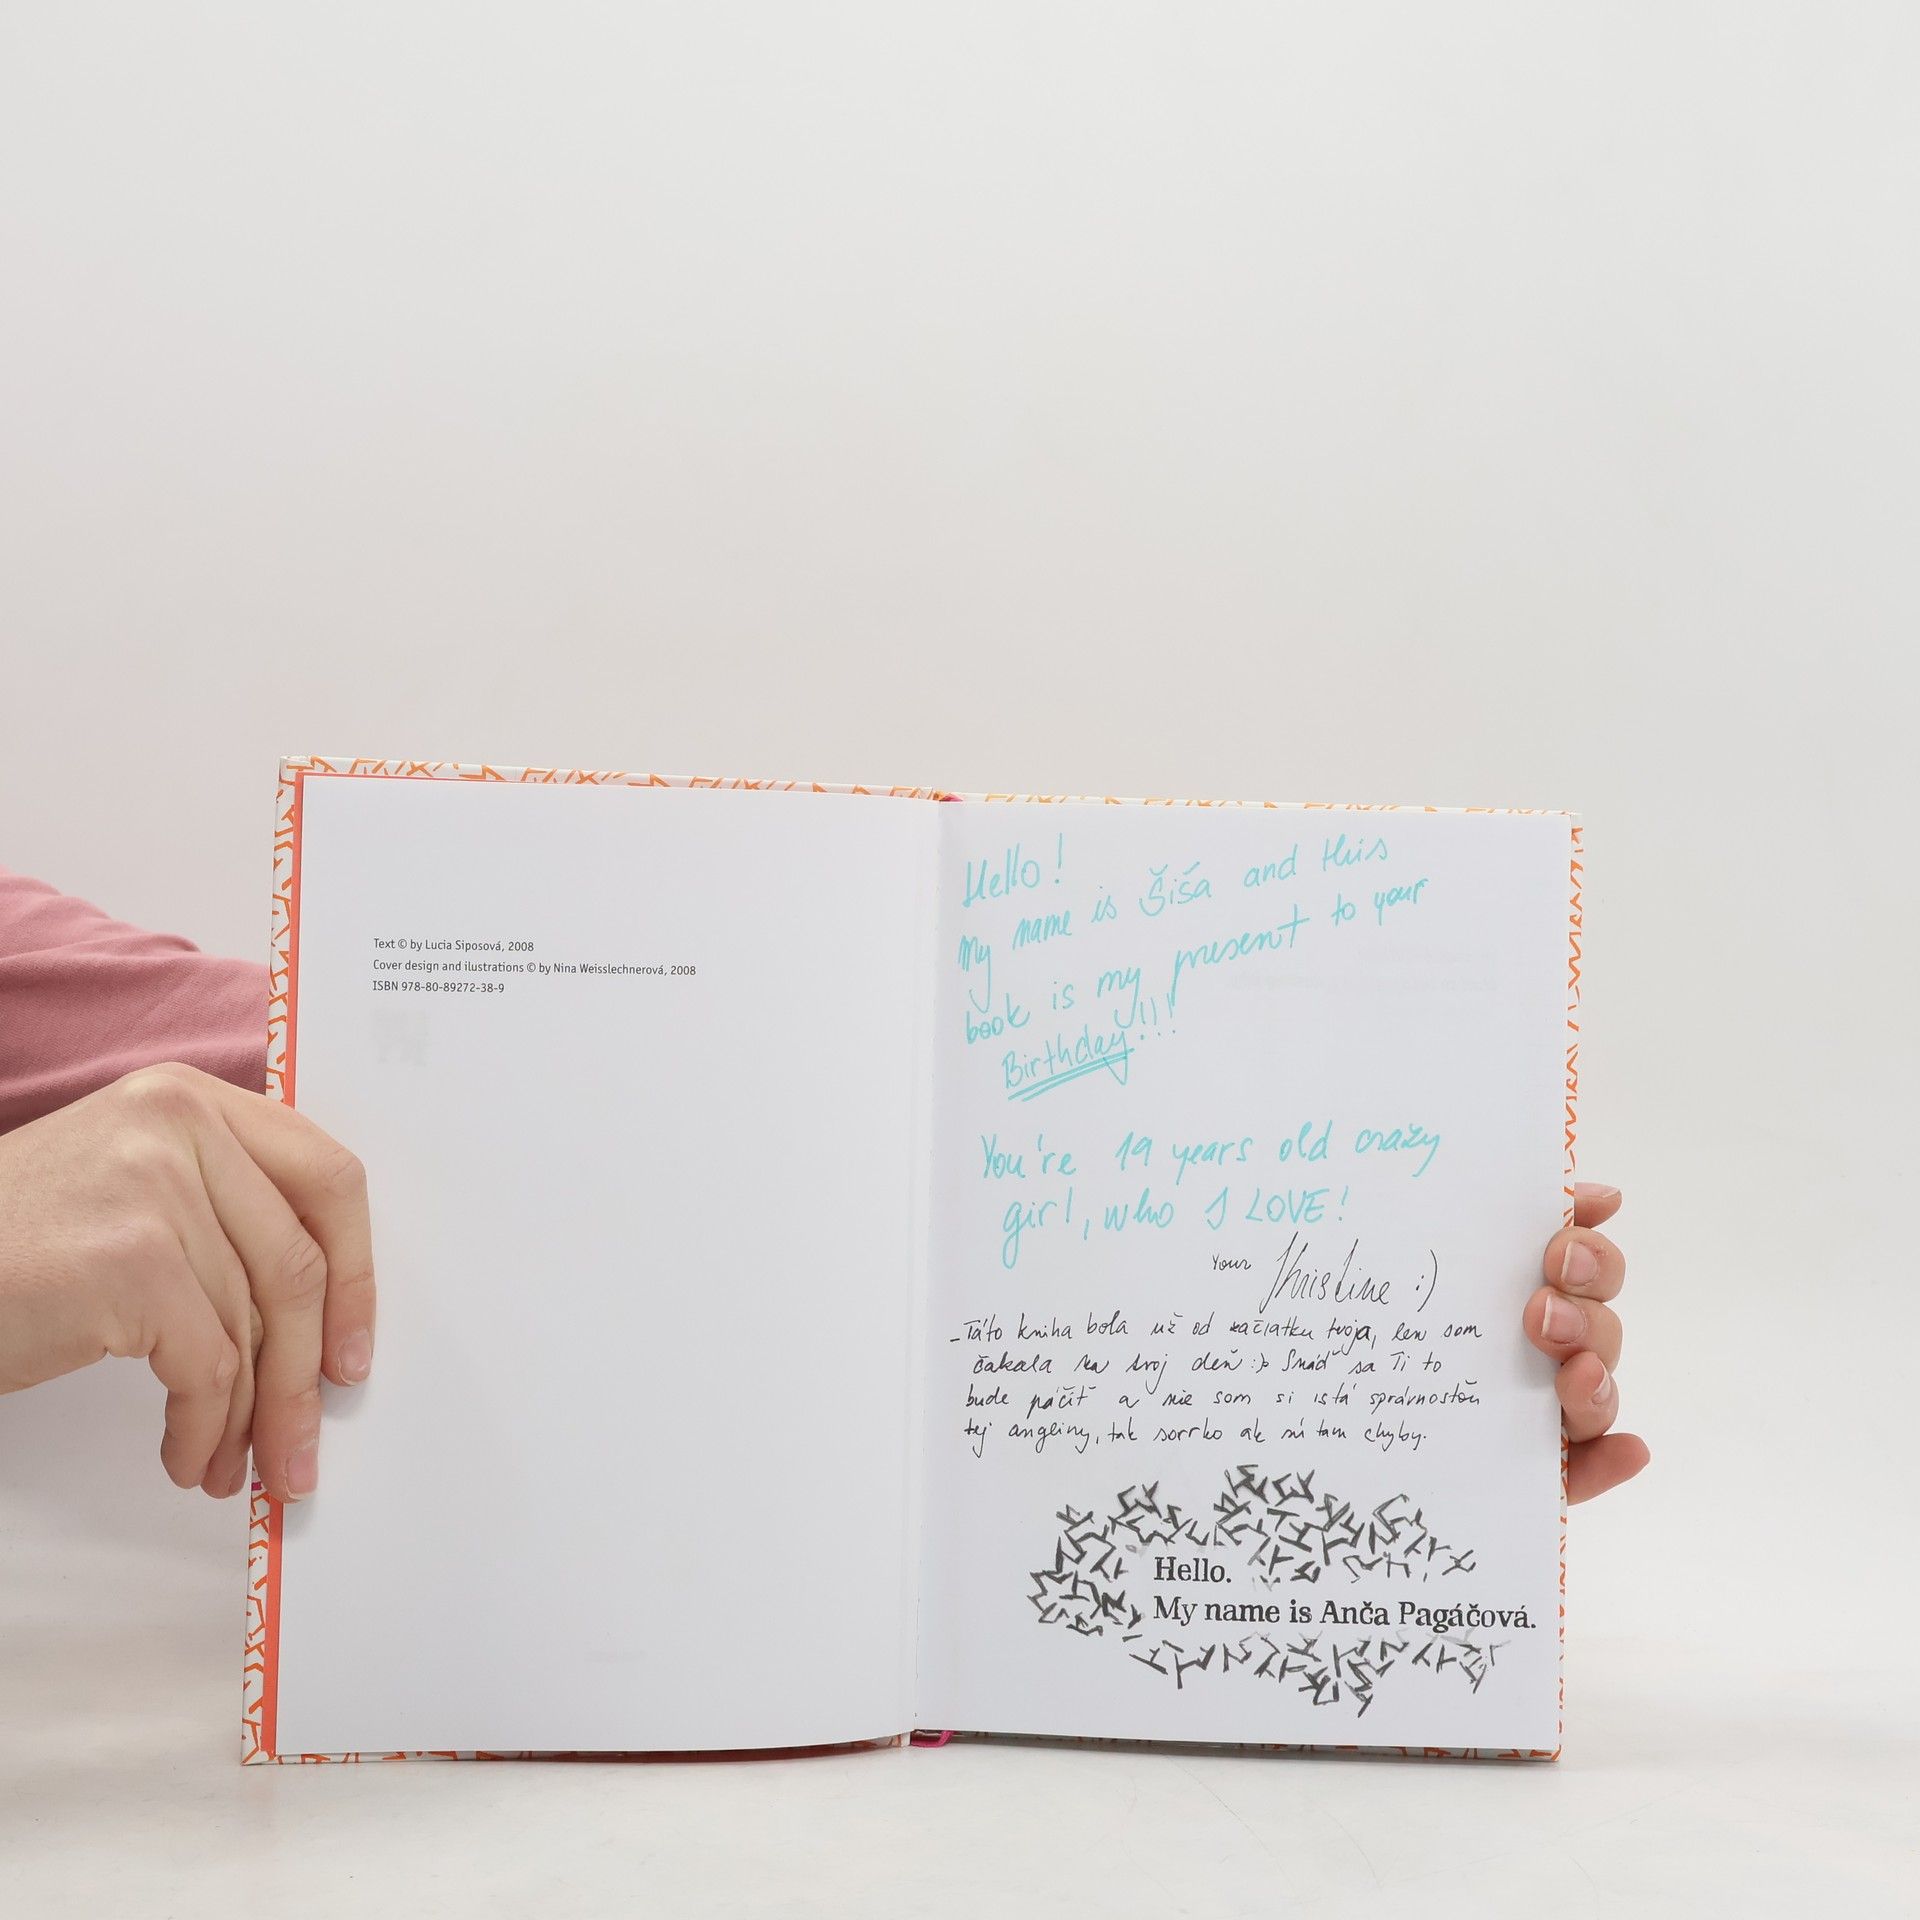 Text © by Lucia Siposová, 2008
Cover design and ilustrations © by Nina Weisslechnerová, 2008
ISBN 978-80-89272-38-9
Hello!
My name is Šiša and this
book is my present to your
Birthday!!!
You're 19 years old crazy
girl, who I LOVE!
Your Khristine :)
- Táto kniha bola už od začiatku tvoja, len som
čakala na tvoj deň :) Snáď sa Ti to
bude páčiť a nie som si istá správnosťou
tej angliny, tak sorrko ak sú tam chyby.
Hello.
My name is Anča Pagáčová.